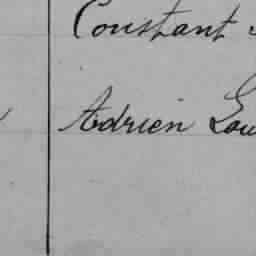 Constant
Adrien Lou